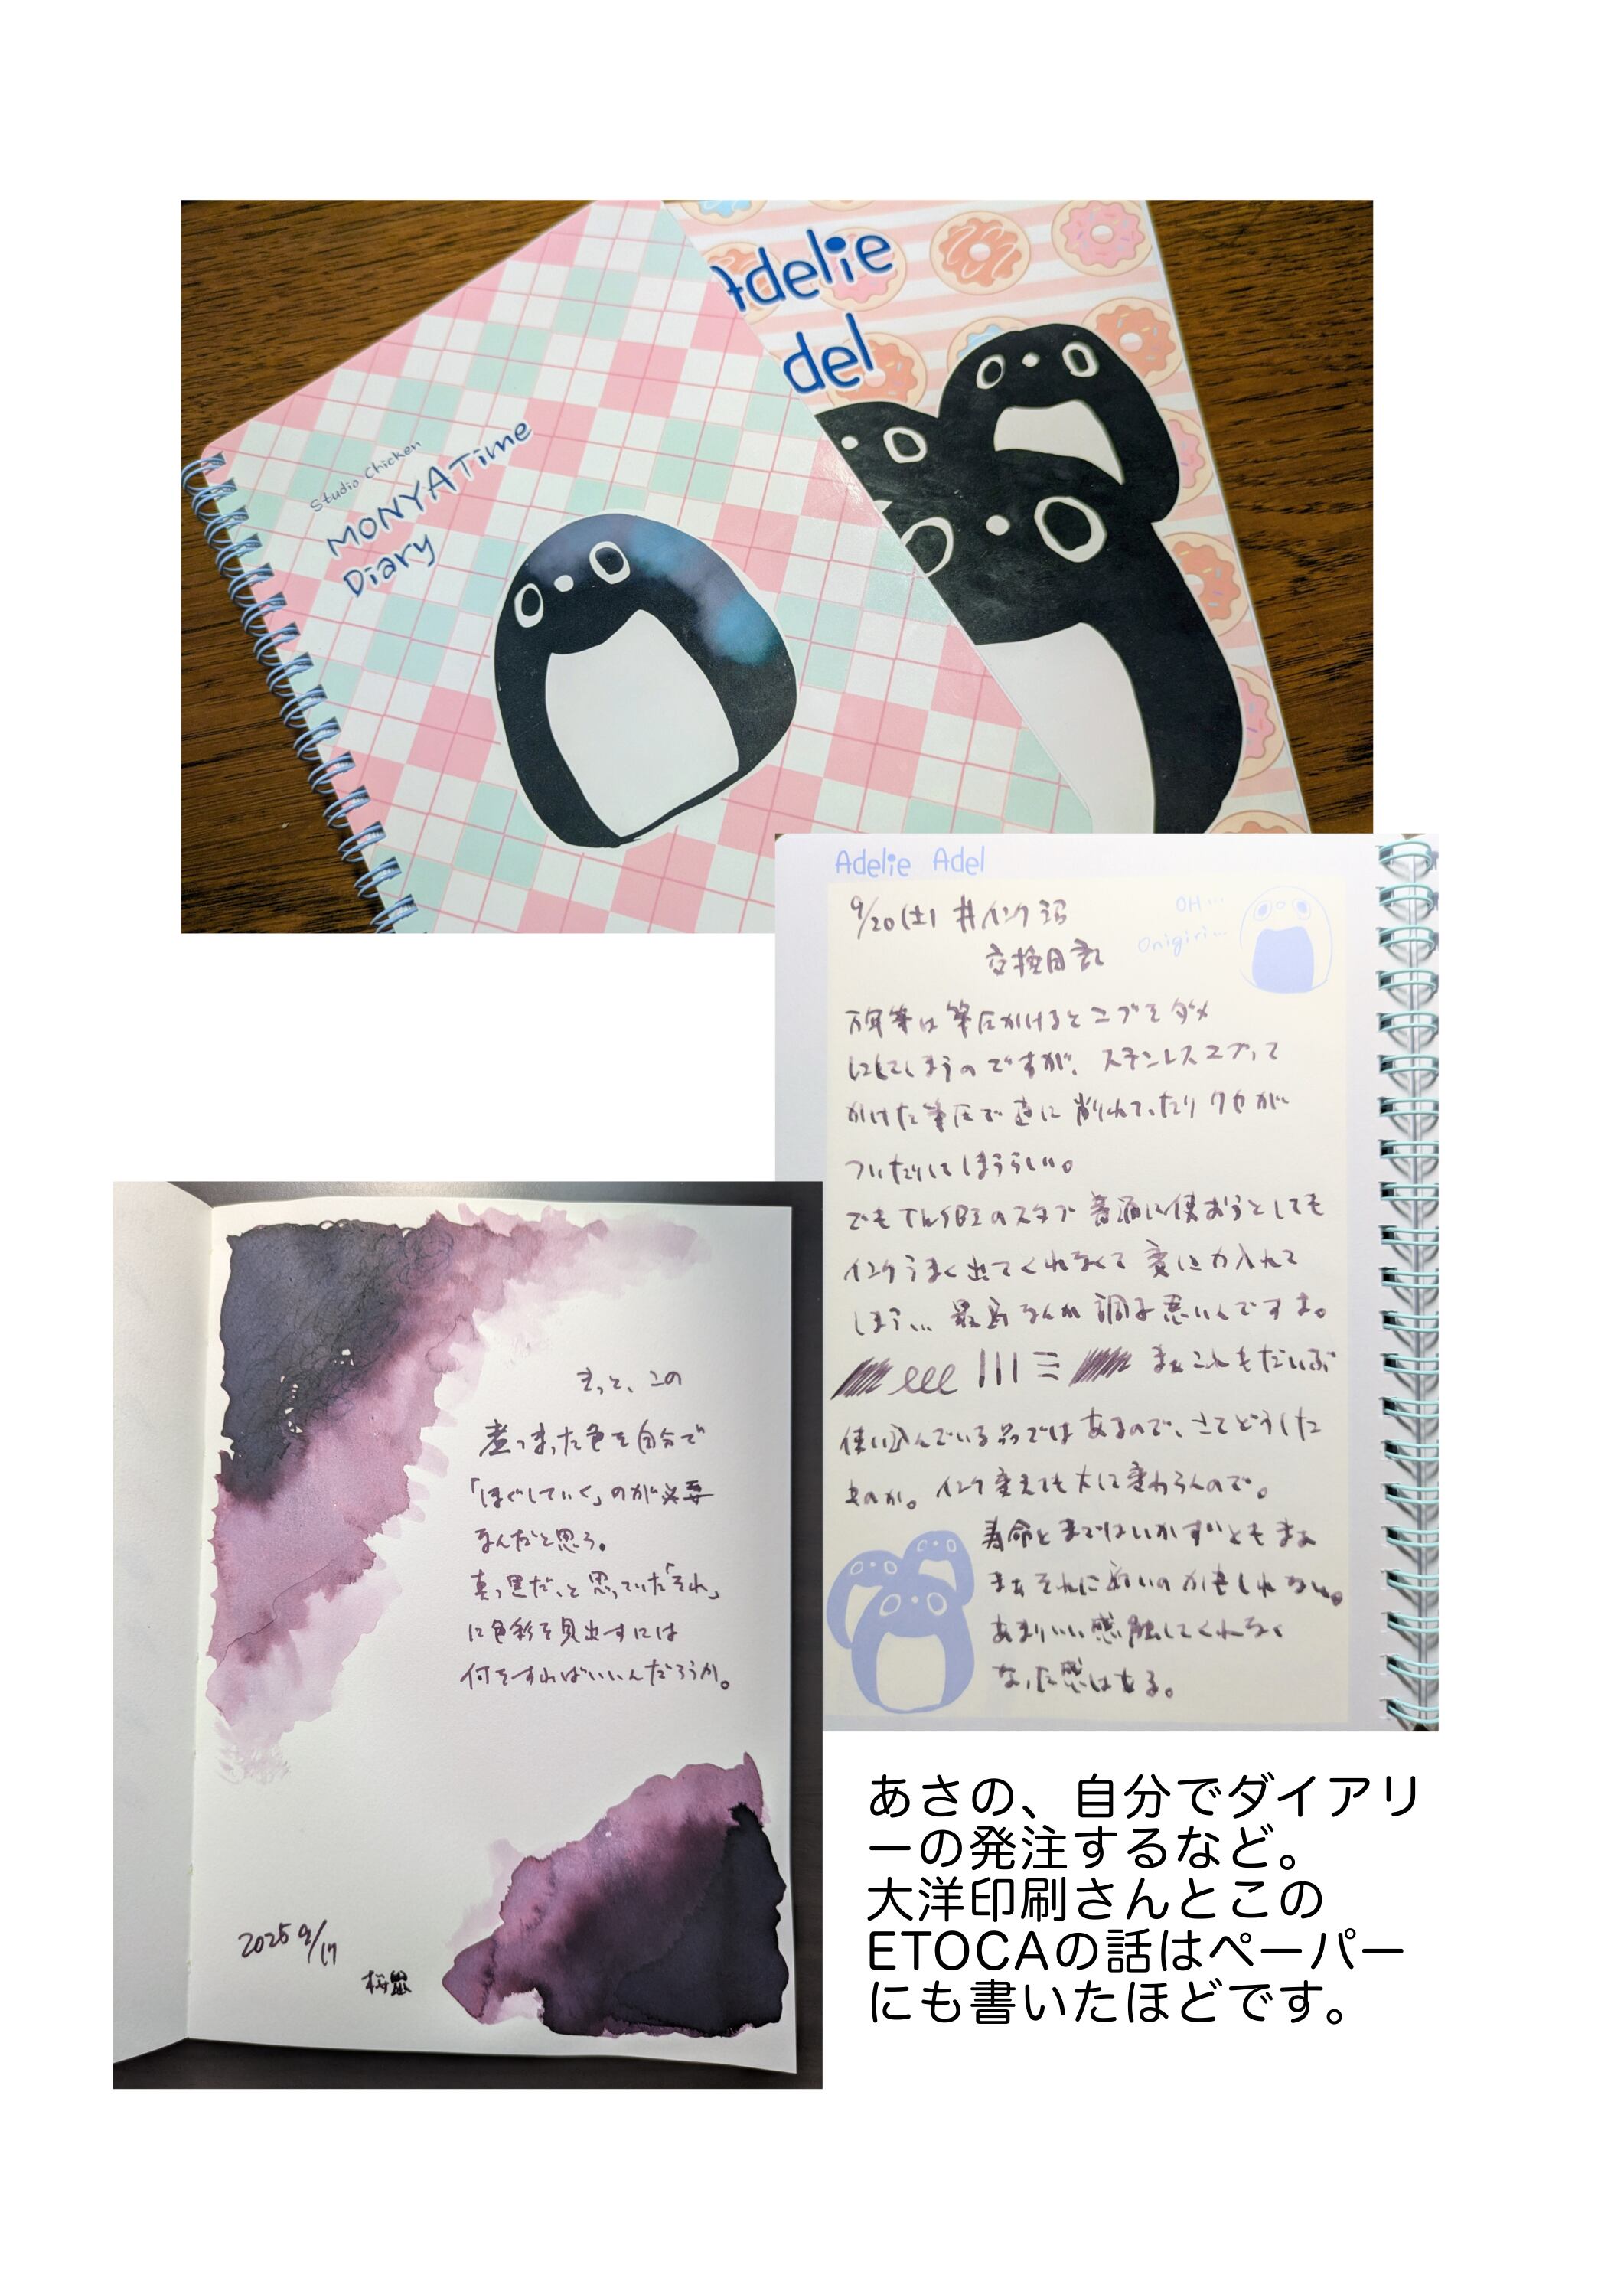 Adelie
del
Studio Chicken
MONYATime
Diary
Adelie Adel
9/20(土) #インク沼
交換日記
OH…
Onigiri…
万年筆は筆圧かけるとニブをダメ
にしてしまうのですが、ステンレスニブって
かけた筆圧で直に削れていったりクセが
ついたりしてしまうらしい。
でもTWSBIのスタブ 普通に使おうとしても
インクうまく出てくれなくて変に力入れて
しまう… 最近なんか調子悪いんですよ。
まぁこれもだいぶ
使い込んでいる品ではあるので、さてどうした
ものか。インク変えても大して変わらんので。
寿命とまではいかずともまぁ
まぁそれに近いのかもしれない。
あまりいい感触してくれなく
なった感はある。
きっと、この
煮つまった色を自分で
「ほぐしていく」のが必要
なんだと思う。
真っ黒だ、と思っていた「それ」
に色彩を見出すには
何をすればいいんだろうか。
2025 9/17
あさの、自分でダイアリ
ーの発注するなど。
大洋印刷さんとこの
ETOCAの話はペーパー
にも書いたほどです。